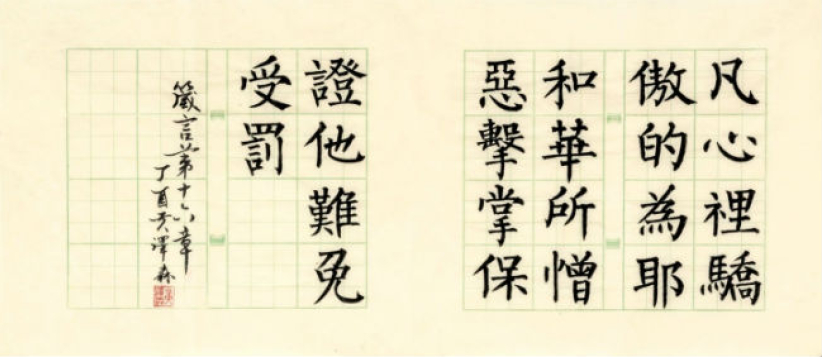 凡心裡驕
傲的為耶
和華所憎
惡擊掌保
證他難免
受罰
箴言第十六章
丁酉吳澤森